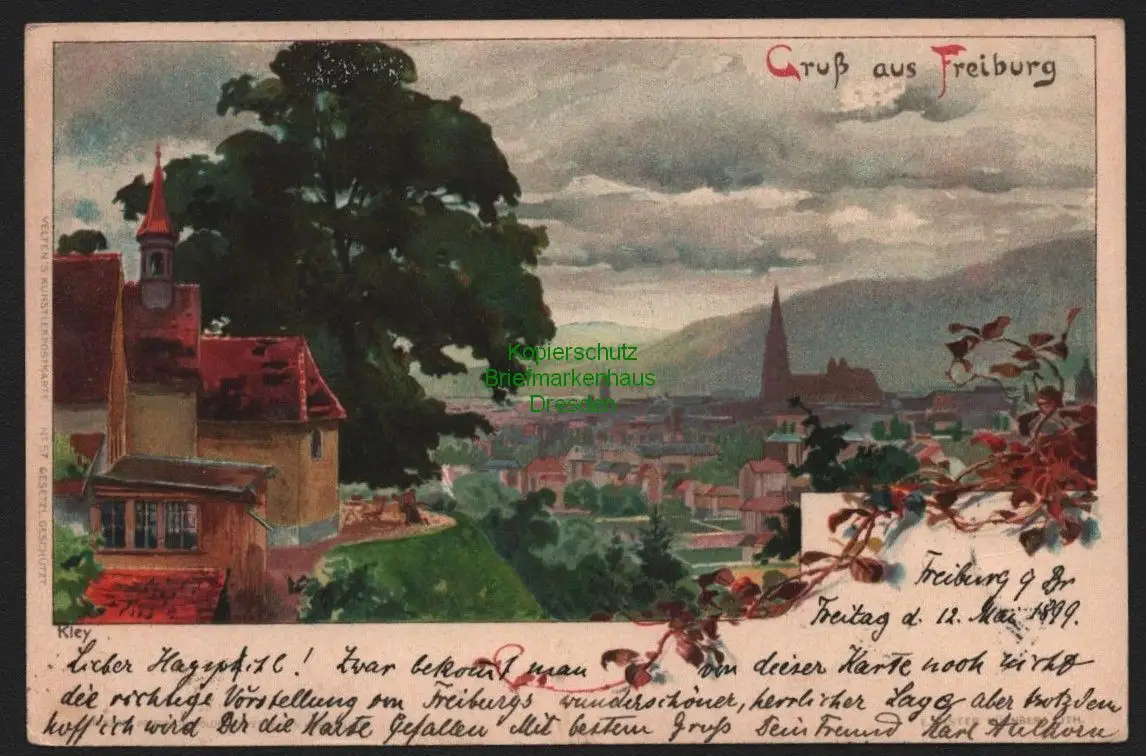 Gruß aus Freiburg
VELTEN'S KÜNSTLERPOSTKARTE Nr. 57 GESETZL. GESCHÜTZT.
Kopierschutz
Briefmarkenhaus
Dresden
Kley
Freiburg
Freitag d. 12. Mai 1899.
Lieber ! Zwar bekomt man von dieser Karte noch nicht
die richtige Vorstellung von Freiburgs wunderschöner, herrlicher Lage aber trotzdem
hoff' ich wird Dir die Karte Gefallen Mit bestem Gruß Dein Freund Karl